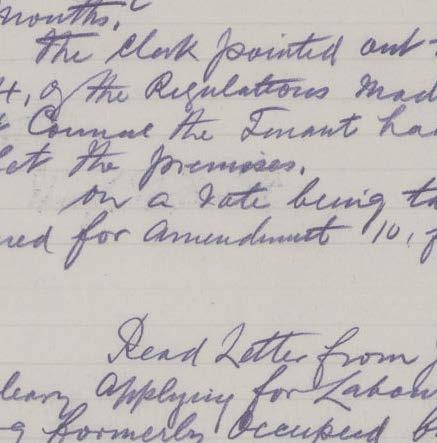 months."
The Clerk pointed out
4, of the Regulations Mad
Council the Tenant had
let the premises.
on a Vote being ta
red for Amendment 10, f
Read Letter from J
leary Applying for Labour
g formerly Occupied b